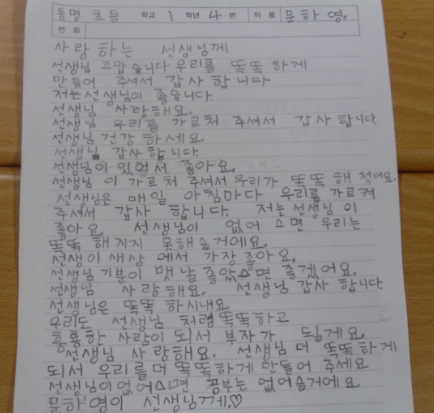 동명 초등 학교 1 학년 4 반 이름 문하영.
전화
사랑하는 선생님께
선생님 고맙습니다 우리를 똑똑하게
만들어 주셔서 감사합니다
저는 선생님이 좋습니다
선생님 사랑해요.
선생님 우리를 가르처 주셔서 감사합니다
선생님 건강하세요.
선생님 감사합니다
선생님이 있어서 좋아요.
선생님이 가르처 주셔서 우리가 똑똑해 젔어요.
선생님은 매일 아침마다 우리를 가르켜
주셔서 감사합니다. 저는 선생님이
좋아요. 선생님이 없어스면 우리는
똑똑해지지 못해슬거에요.
선생이 새상에서 가장 좋아요.
선생님 기분이 맨날 좋았스면 좋겠어요.
선생님 사랑해요. 선생님 감사합니다
선생님은 똑똑하시내요.
우리도 선생님처럼 똑똑하고
훌륭한 사람이 되서 부자가 될게요.
선생님 사랑해요. 선생님 더 똑똑하게
되서 우리를 더 똑똑하게 만들어 주세요
선생님이 없어스면 공부는 없어슬거에요
문하영이 선생님께♡